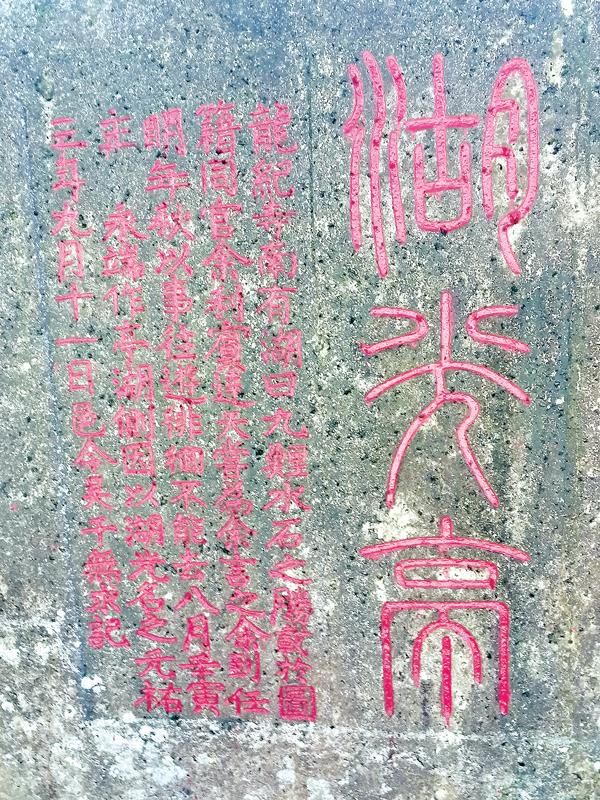 湖光亭
龍紀寺南有湖曰九鯉水石之勝最於圖
籍同官余利賓達夫嘗為余言之余到任
明年秋以事任遊徘徊不能去八月辛寅
主永端作亭湖側因以湖光名之元祐
三年九月十一日邑令吳千無求記